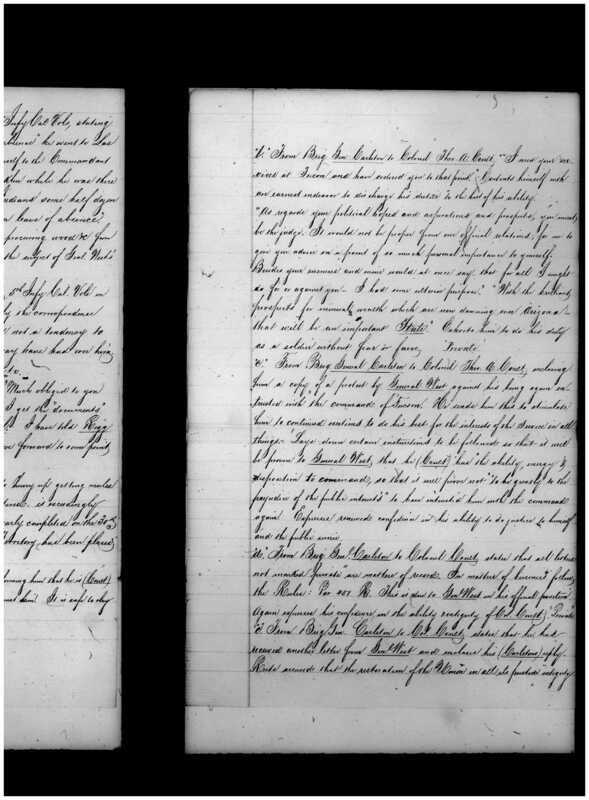 Infy Cal Vols, stating
he went to Las
to the Commandant
while he was there
Indians some half dozen
leave of absence
procuring wood & from
the subject of Genl. West's
5th Infy Cal. Vols in
the correspondence
not a tendency to
have had over him,
to
Much obliged to you
get the "documents"
I have told Rigg
forward to some point
to hurry up getting
is exceedingly
completed on the 30th
has been placed,
him that he is (Coult)
him. It is safe to
"b." From Brig Gen Carleton to Colonel Theo. A. Coult, "I need your
at Tucson and have ordered you to that point." Contents himself with
an earnest endeavor to discharge his duties to the best of his ability.
"As regards your political hopes and aspirations and prospects, you must
be the judge. It would not be proper from our official relations, for me to
give you advice on a point of so much personal importance to yourself.
Besides your enemies and mine would at once say that for all I might
do for or against you - I had some ulterior purpose." "With the brilliant
prospects for mineral wealth which are now dawning over Arizona -
that will be an important State." Exhorts him to do his duty
as a soldier without fear or favor. Private.
"c." From Brig General Carleton to Colonel Theo. A. Coult, enclosing
him a copy of a protest by General West against his being again en-
trusted with the command of Tucson. He sends him this to stimulate
him to continued exertions to do his best for the interests of the Service in all
things. Lays down certain instructions to be followed so that it will
be proven to General West, that he (Coult) "has the ability, energy &
disposition to command," so that it will prove not "to be greatly to the
prejudice of the public interests" to have entrusted him with the command
again. Expresses renewed confidence in his ability to do justice to himself
and the public service.
"d." From Brig Genl. Carleton to Colonel Coult, states that all letters
not marked "private" are matters of record. In matters of business follow
the Rules: Par 451 R. This is due to Genl West in his official position.
Again expresses his confidence in the ability & integrity of Col. Coult, "Private"
"e." From Brig Gen. Carleton to Col. Coult, states that he had
received another letter from Genl West and encloses his (Carleton's) reply.
Rests assured that the restoration of the Union in all its pristine integrity